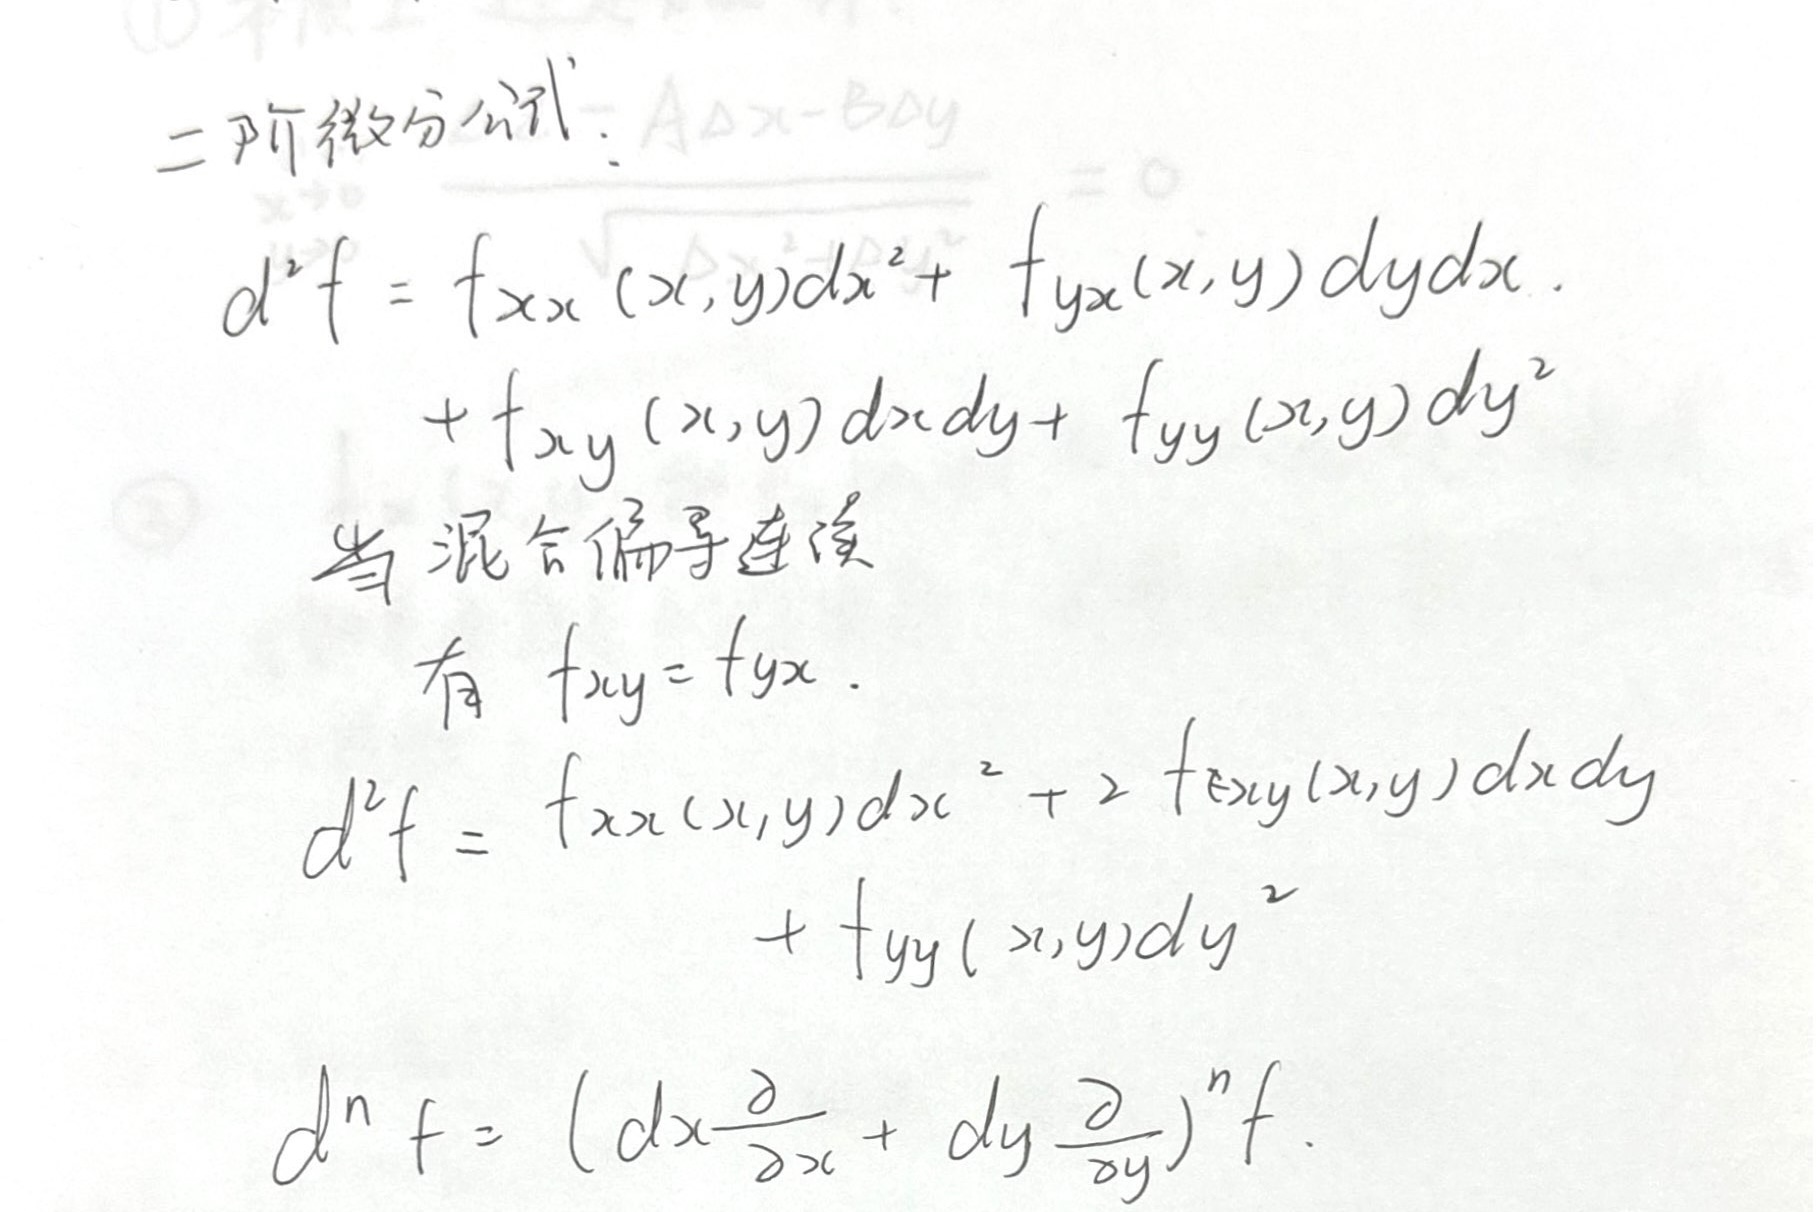 二阶微分公式:
d²f = fxx(x,y)dx² + fyx(x,y)dydx.
+ fxy(x,y)dxdy + fyy(x,y)dy²
当混合偏导连续
有 fxy = fyx.
d²f = fxx(x,y)dx² + 2fxy(x,y)dxdy
+ fyy(x,y)dy²
dⁿf = (dx ∂/∂x + dy ∂/∂y)ⁿ f.